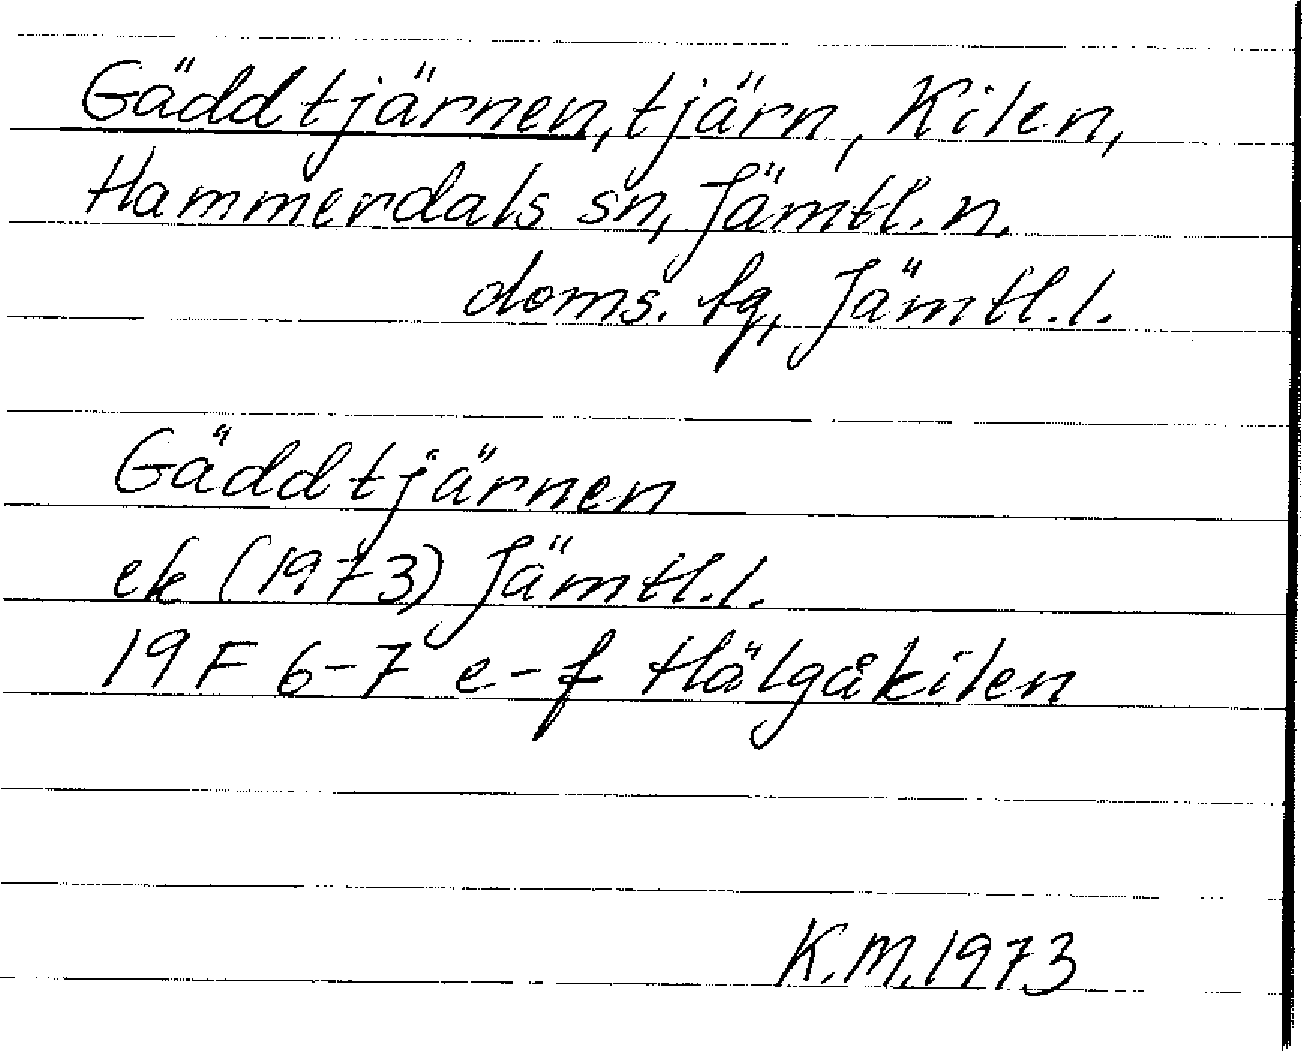 Gäddtjärnen, tjärn, Kilen,
Hammerdals sn, Jämtl. n.
doms. tg, Jämtl. l.
Gäddtjärnen
ek (1973) Jämtl. l.
19 F 6-7 e-f Hälgåkilen
K. M. 1973